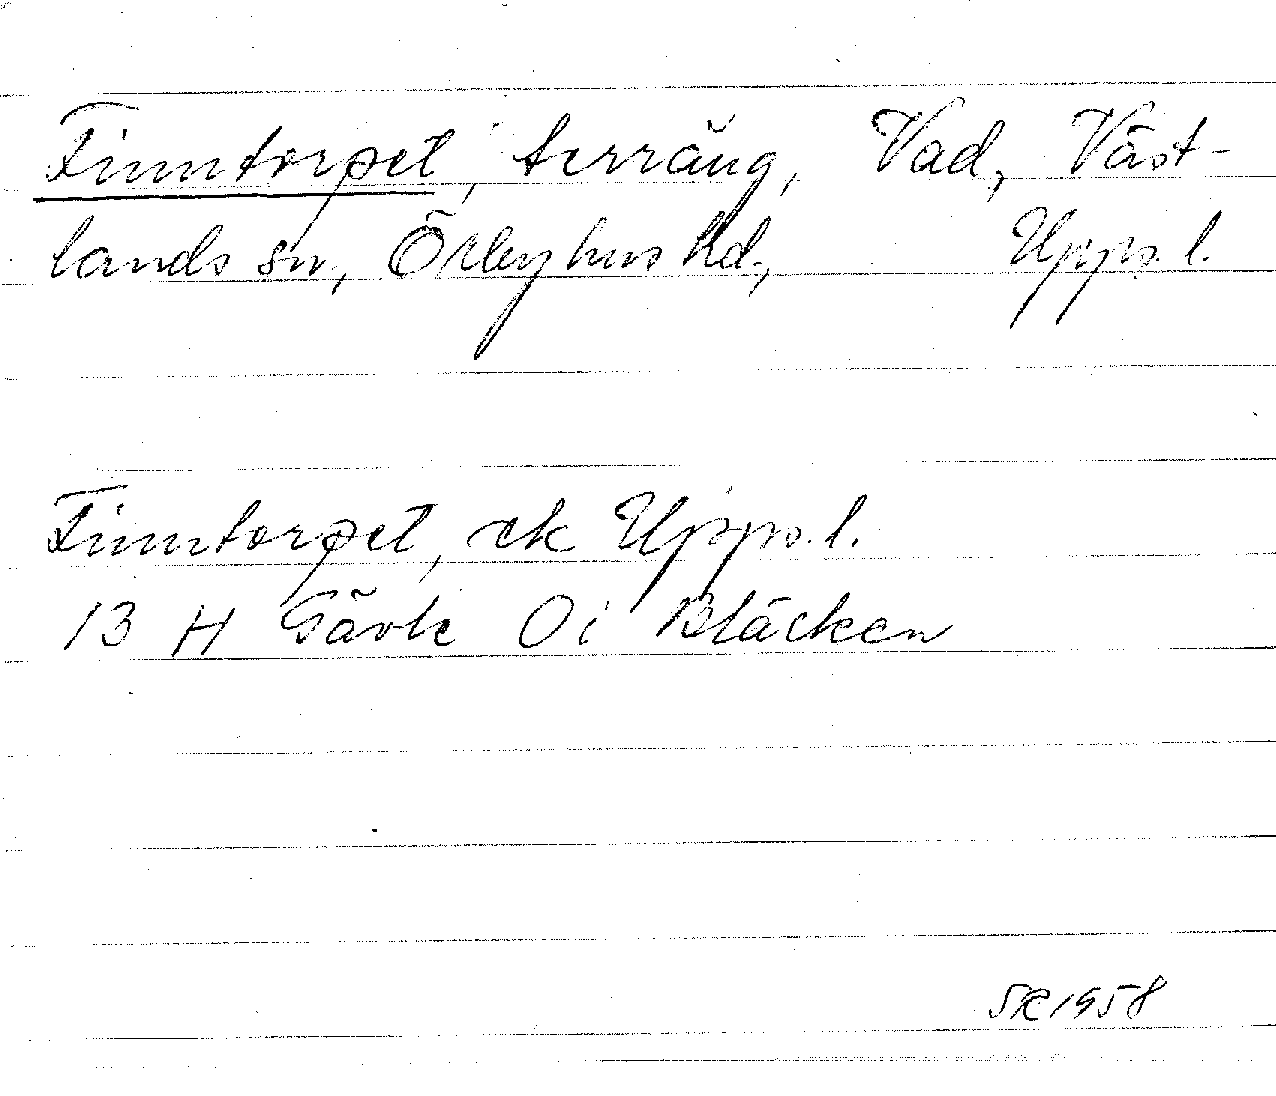 Finntorpet, terräng, Vad, Väst-
lands sn, Örbyhus hd, Upps. l.
Finntorpet, ek Upps. l.
13 H Gävle 0i Bläcken
SR 1958